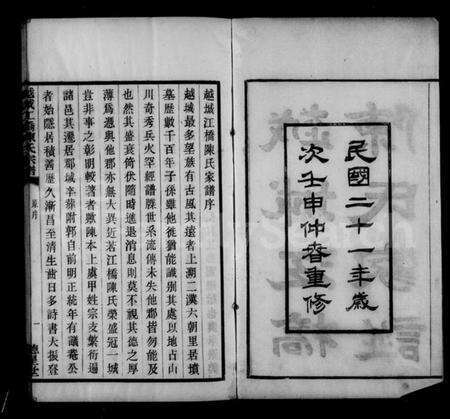 民國二十一年歲
次壬申仲春重修
越城江橋陳氏家譜序
越城最多望族有古風其遠者上溯二漢六朝里居墳
墓歷數千百年子孫雖他徙猶能識別其處以地占山
川奇秀兵火罕經譜牒世系流傳未失他郡皆勿能及
也然其盛衰倚伏隨時進退消息則莫不視其德之厚
薄為憑與他郡亦無大異近若江橋陳氏榮盛冠一城
豈非事之彰明較著者歟陳本上虞甲姓宗支繁衍遍
諸邑其遷居郡城辛葑附郭自前明正統年有議菴公
者始隱居積善歷久漸昌至清生齒日多詩書大振登
越城江橋陳氏家譜
序
一